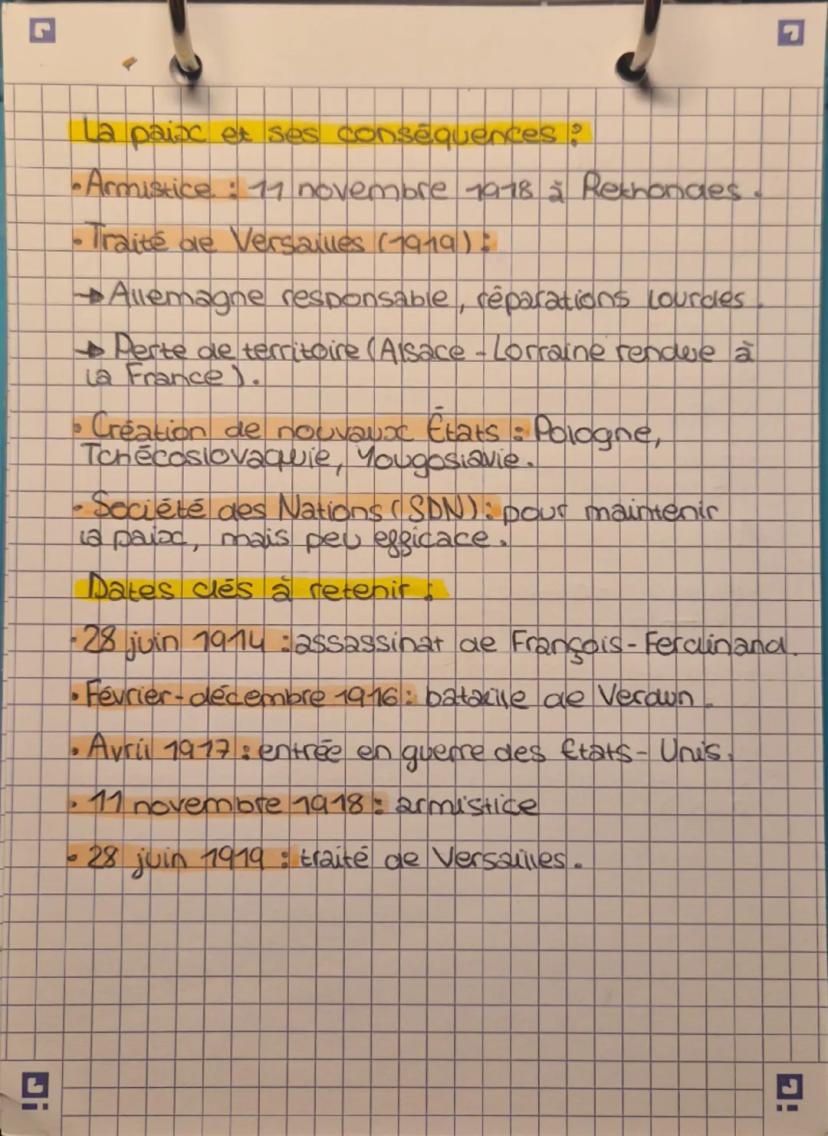 La paix et ses conséquences :
• Armistice : 11 novembre 1918 à Rethondes.
• Traité de Versailles (1919) :
→ Allemagne responsable, réparations lourdes.
→ Perte de territoire (Alsace-Lorraine rendue à
la France).
• Création de nouvaux États : Pologne,
Tchécoslovaquie, Yougoslavie.
• Société des Nations (SDN) : pour maintenir
la paix, mais peu efficace.
Dates clés à retenir :
• 28 juin 1914 : assassinat de François-Ferdinand.
• Février-décembre 1916 : bataille de Verdun.
• Avril 1917 : entrée en guerre des Etats-Unis.
• 11 novembre 1918 : armistice
• 28 juin 1919 : traité de Versailles.